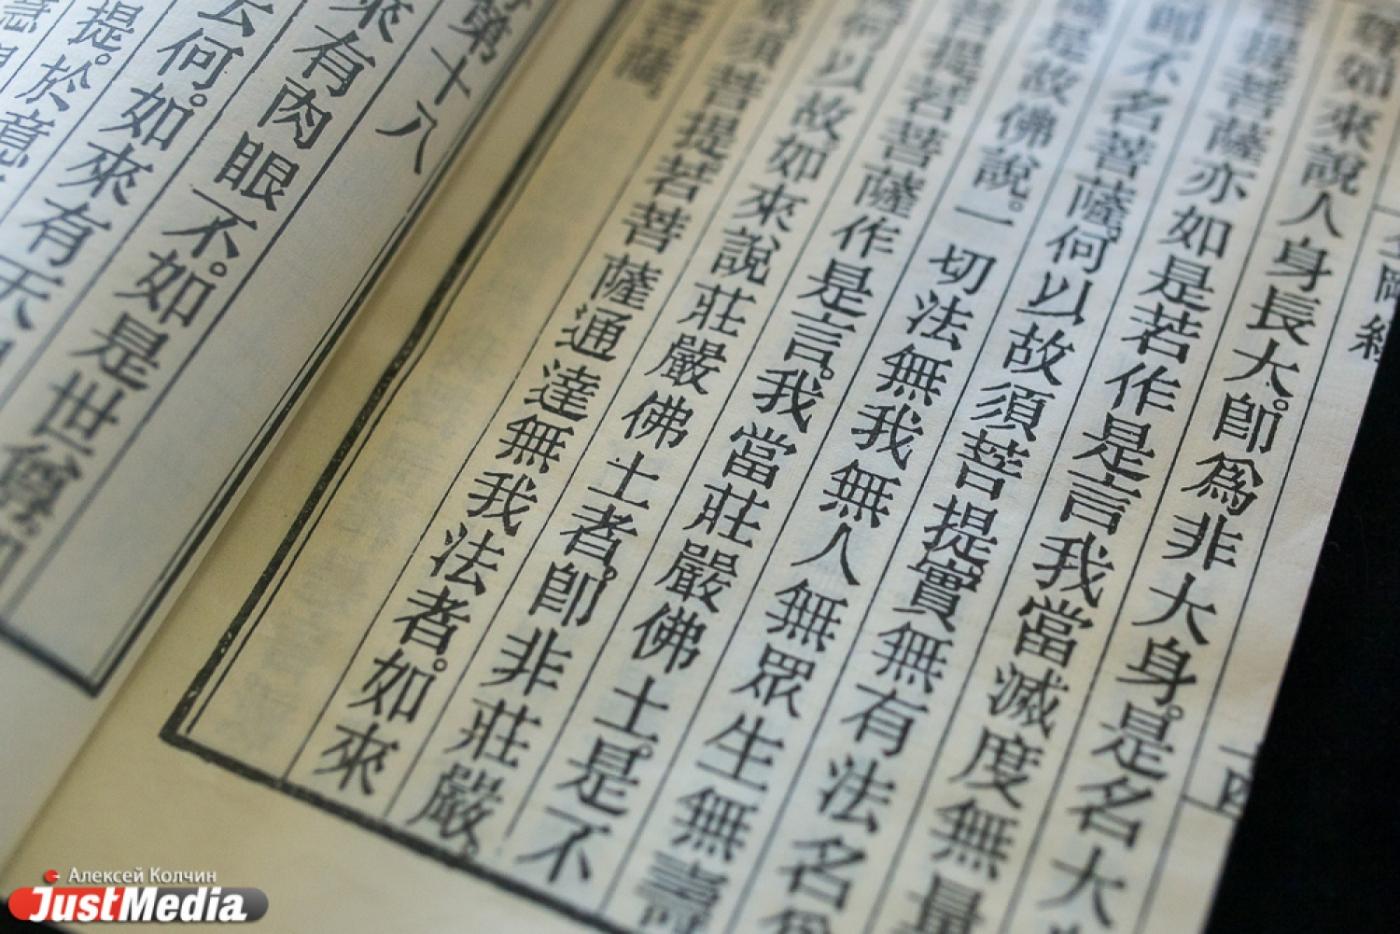 如來說人身長大。卽爲非大身。是名大
提菩薩亦如是若作是言我當滅度無量
卽不名菩薩。何以故須菩提實無有法名爲
是故佛說。一切法無我無人無眾生無壽
菩提若菩薩作是言。我當莊嚴佛土。是不
何以故如來說莊嚴佛土者。卽非莊嚴。
須菩提若菩薩通達無我法者。如來
菩薩。
第十八
來有肉眼不。如是世尊
云何。如來有天
提。於意
Алексей Колчин
JustMedia